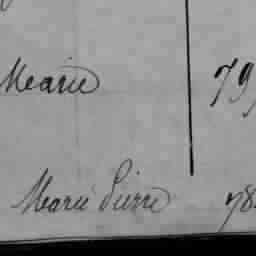 Marie 79
Marie Pierre 78